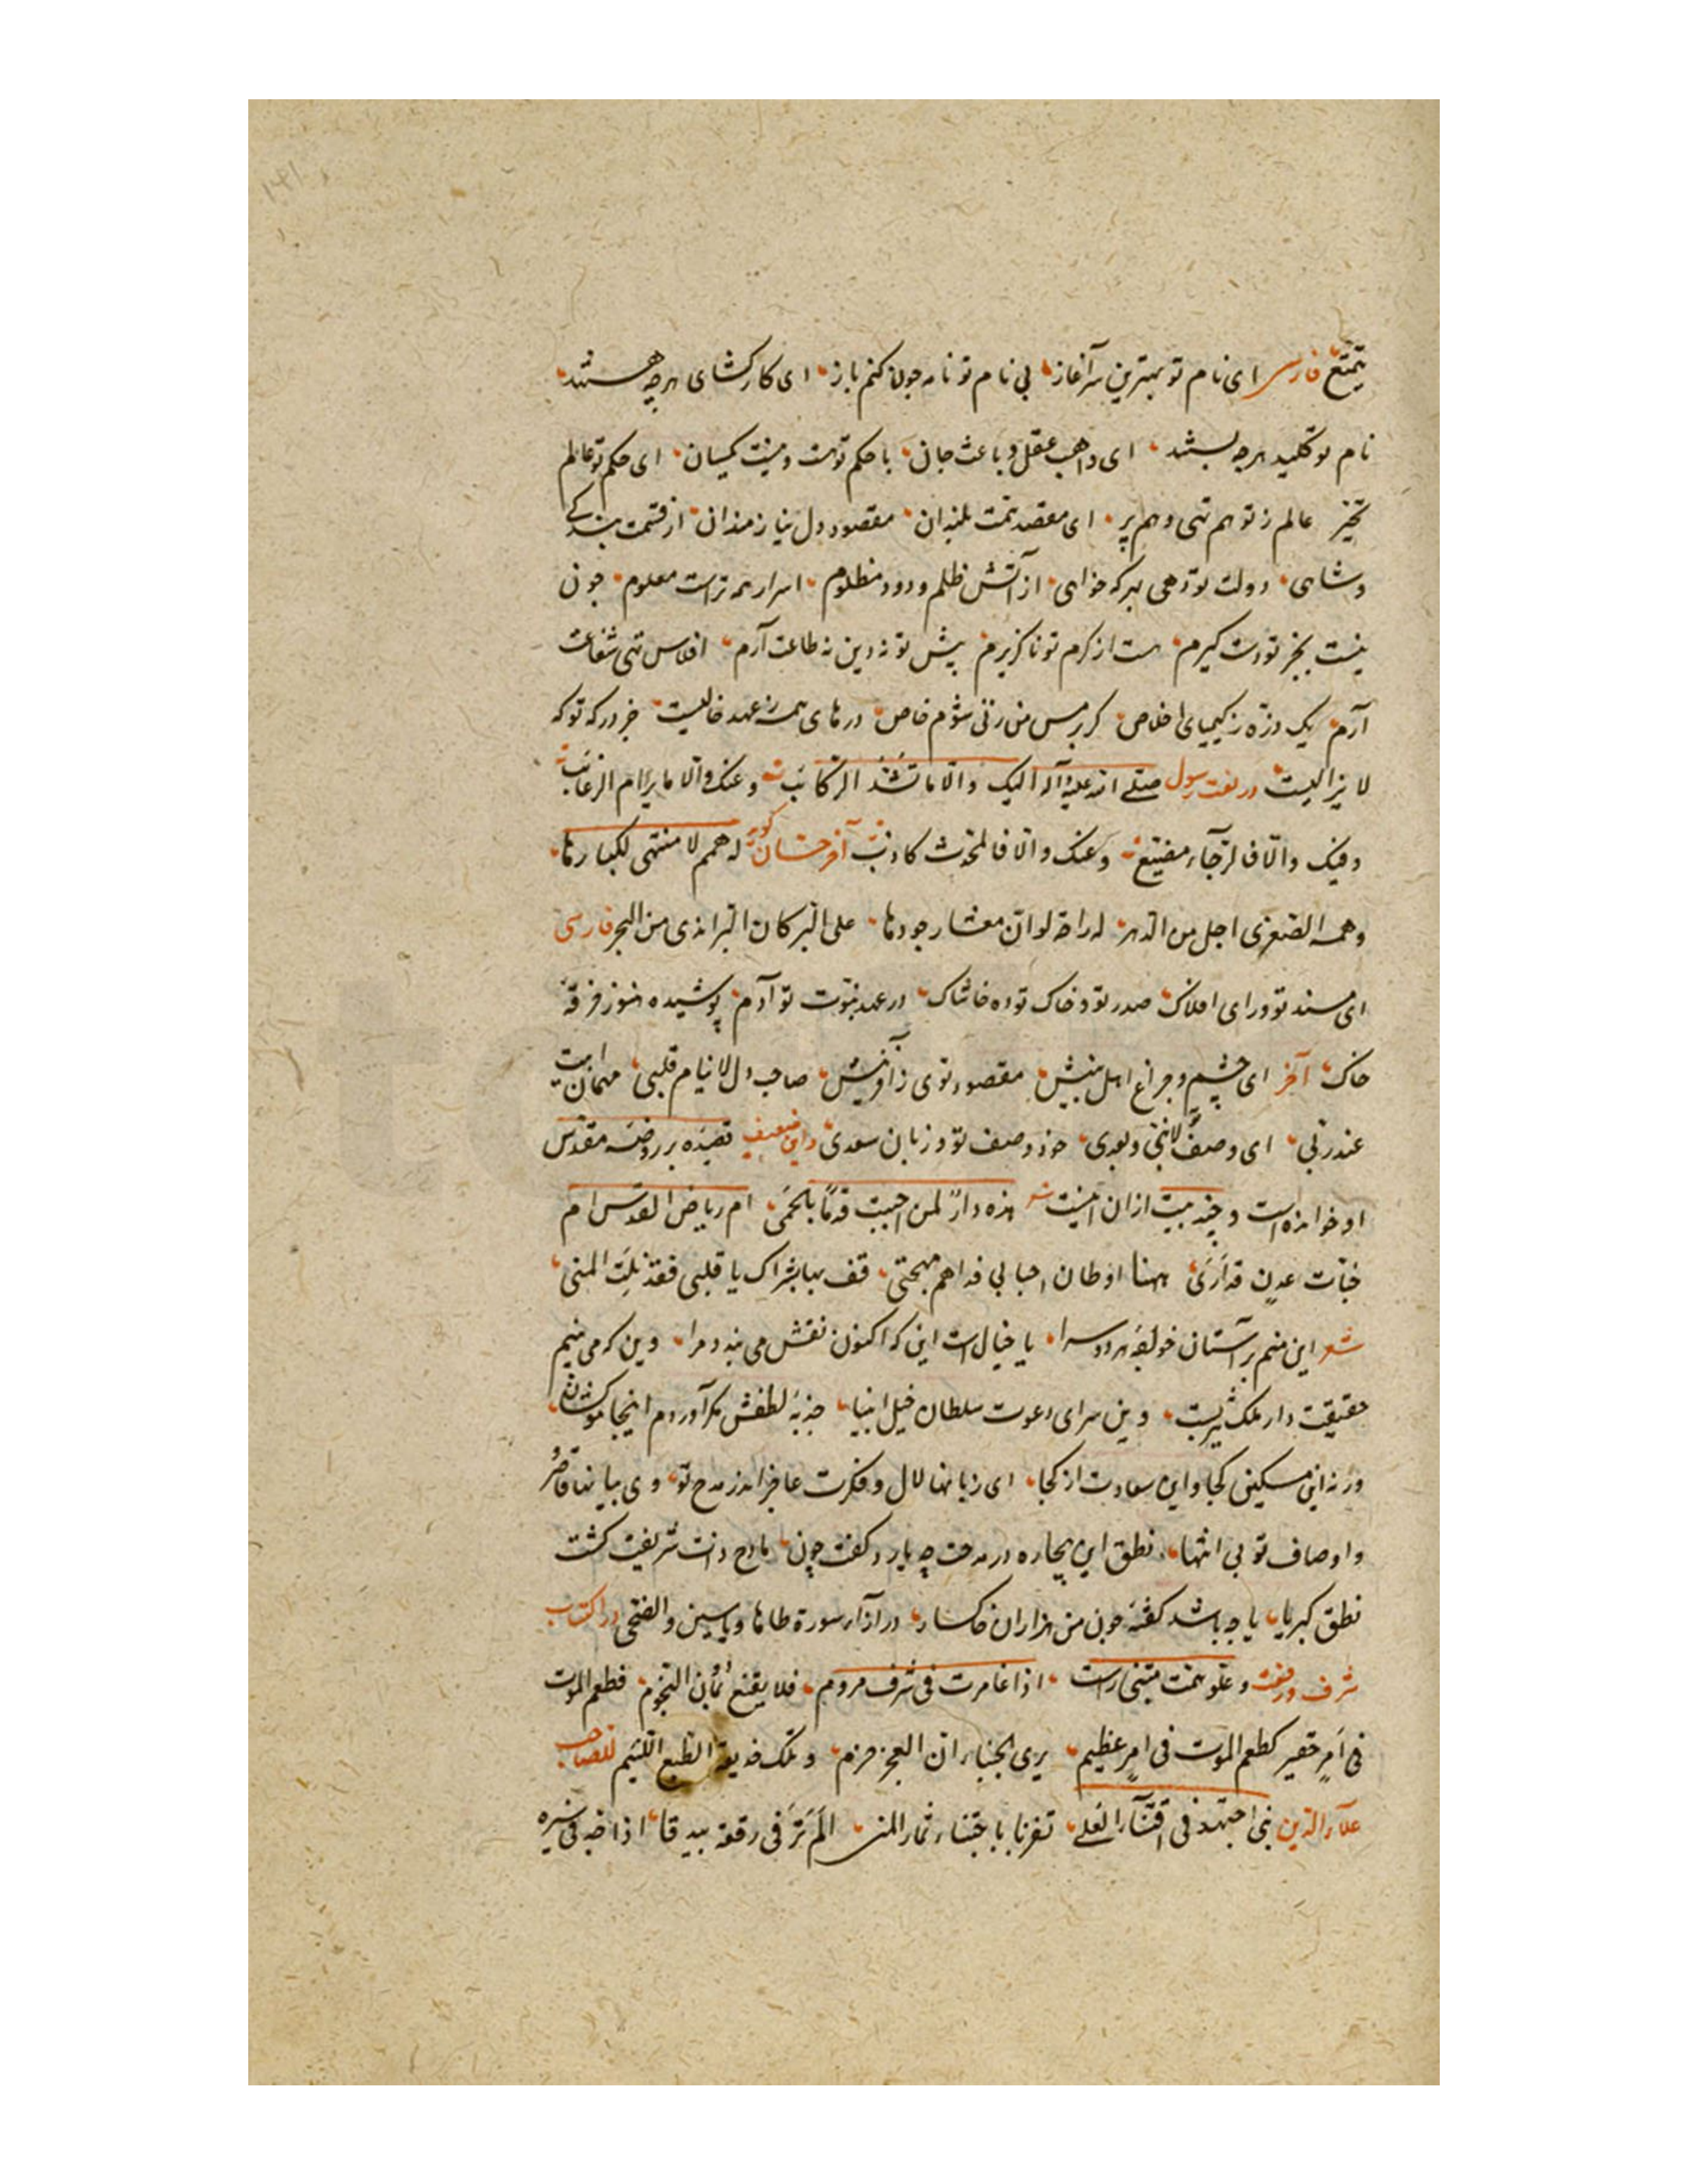 یمتع فارسی ای نام تو بهترین سرآغاز بی نام تو نامه چون کنم باز ای کارکشای هرچه هستند
نام تو کلید هرچه بستند ای واهب عقل و باعث جان با حکم تو هست و نیست یکسان ای حکم تو عالم
عالم ز تو هم تهی و هم پر ای مقصد همت بلندان مقصود دل نیازمندان از قسمت بندکی
و شاهی دولت تو دهی بهر که خواهی از آتش ظلم و دود مظلوم اسرار همه تراست معلوم چون
نیست بجز تو دست کیرم هست از کرم تو ناکزیرم پیش تو نه دین نه طاعت آرم افلاس تهی شفاعت
آرم یک ذره ز کیمیای اخلاص کر بر مس من زنی شوم خاص درهای همه ز عهد خالیست جز درکه تو که
لا یزالیست در نعت رسول صلی الله علیه و آله الیک والا ما تشد الرکائب وعنک والا ما یرام الرغائب
وفیک والا فالرجاء مضیع وعنک والا فالمحدث کاذب آخر حسان کوید له همم لا منتهی لکبارها
وهمه الصغری اجل من الدهر له راحة لو ان معشار جودها علی البر کان البر اندی من البحر فارسی
ای مسند تو ورای افلاک صدر تو و خاک توده خاشاک در عهد نبوت تو آدم پوشیده هنوز خرقه
خاک آخر ای چشم و چراغ اهل بینش مقصود توی ز آفرینش صاحب دل لا ینام قلبی مهمان ابیت
عند ربی ای وصف لا نبی و بعدی خود وصف تو و زبان سعدی و این ضعیف قصیده بر روضه مقدس
او خوانده است و چند بیت از آن اینست هذه دار لمن احببت قدما بالحمی ام ریاض القدس ام
جنات عدن قد اری ههنا اوطان احبابی فداهم مهجتی قف بها بشراک یا قلبی فقد نلت المنی
شعر این منم بر آستان خواجه هر دو سرا یا خیال است این که اکنون نقش می بندد مرا وین که می بینم
حقیقت دار ملک یثربست وین سرای دعوت سلطان خیل انبیا جذبه لطفش مکر آوردم اینجا موکشان
ورنه این مسکین کجا و این سعادت از کجا ای زبانها لال و فکرت عاجز اندر مدح تو وی بیانها قاصر
و اوصاف تو بی انتها نطق این بیچاره در مدحت چه یارد کفت چون مادح ذات شریفت کشت
نطق کبریا یا چه باشد کفته چون من هزاران خاکسار در ازاء سوره طاها و یاسین والضحی در اکتساب
شرف و رفعت و علو همت متنبی راست اذا غامرت فی شرف مروم فلا تقنع بما دون النجوم فطعم الموت
فی امر حقیر کطعم الموت فی امر عظیم یری الجبناء ان العجز حزم وتلک خدیعة الطبع اللئیم للصاحب
علاء الدین بنی اجتهد فی اقتناء العلی تفز باجتناء ثمار المنی الم تر فی رقعة بیدقا اذا جد فی سیره